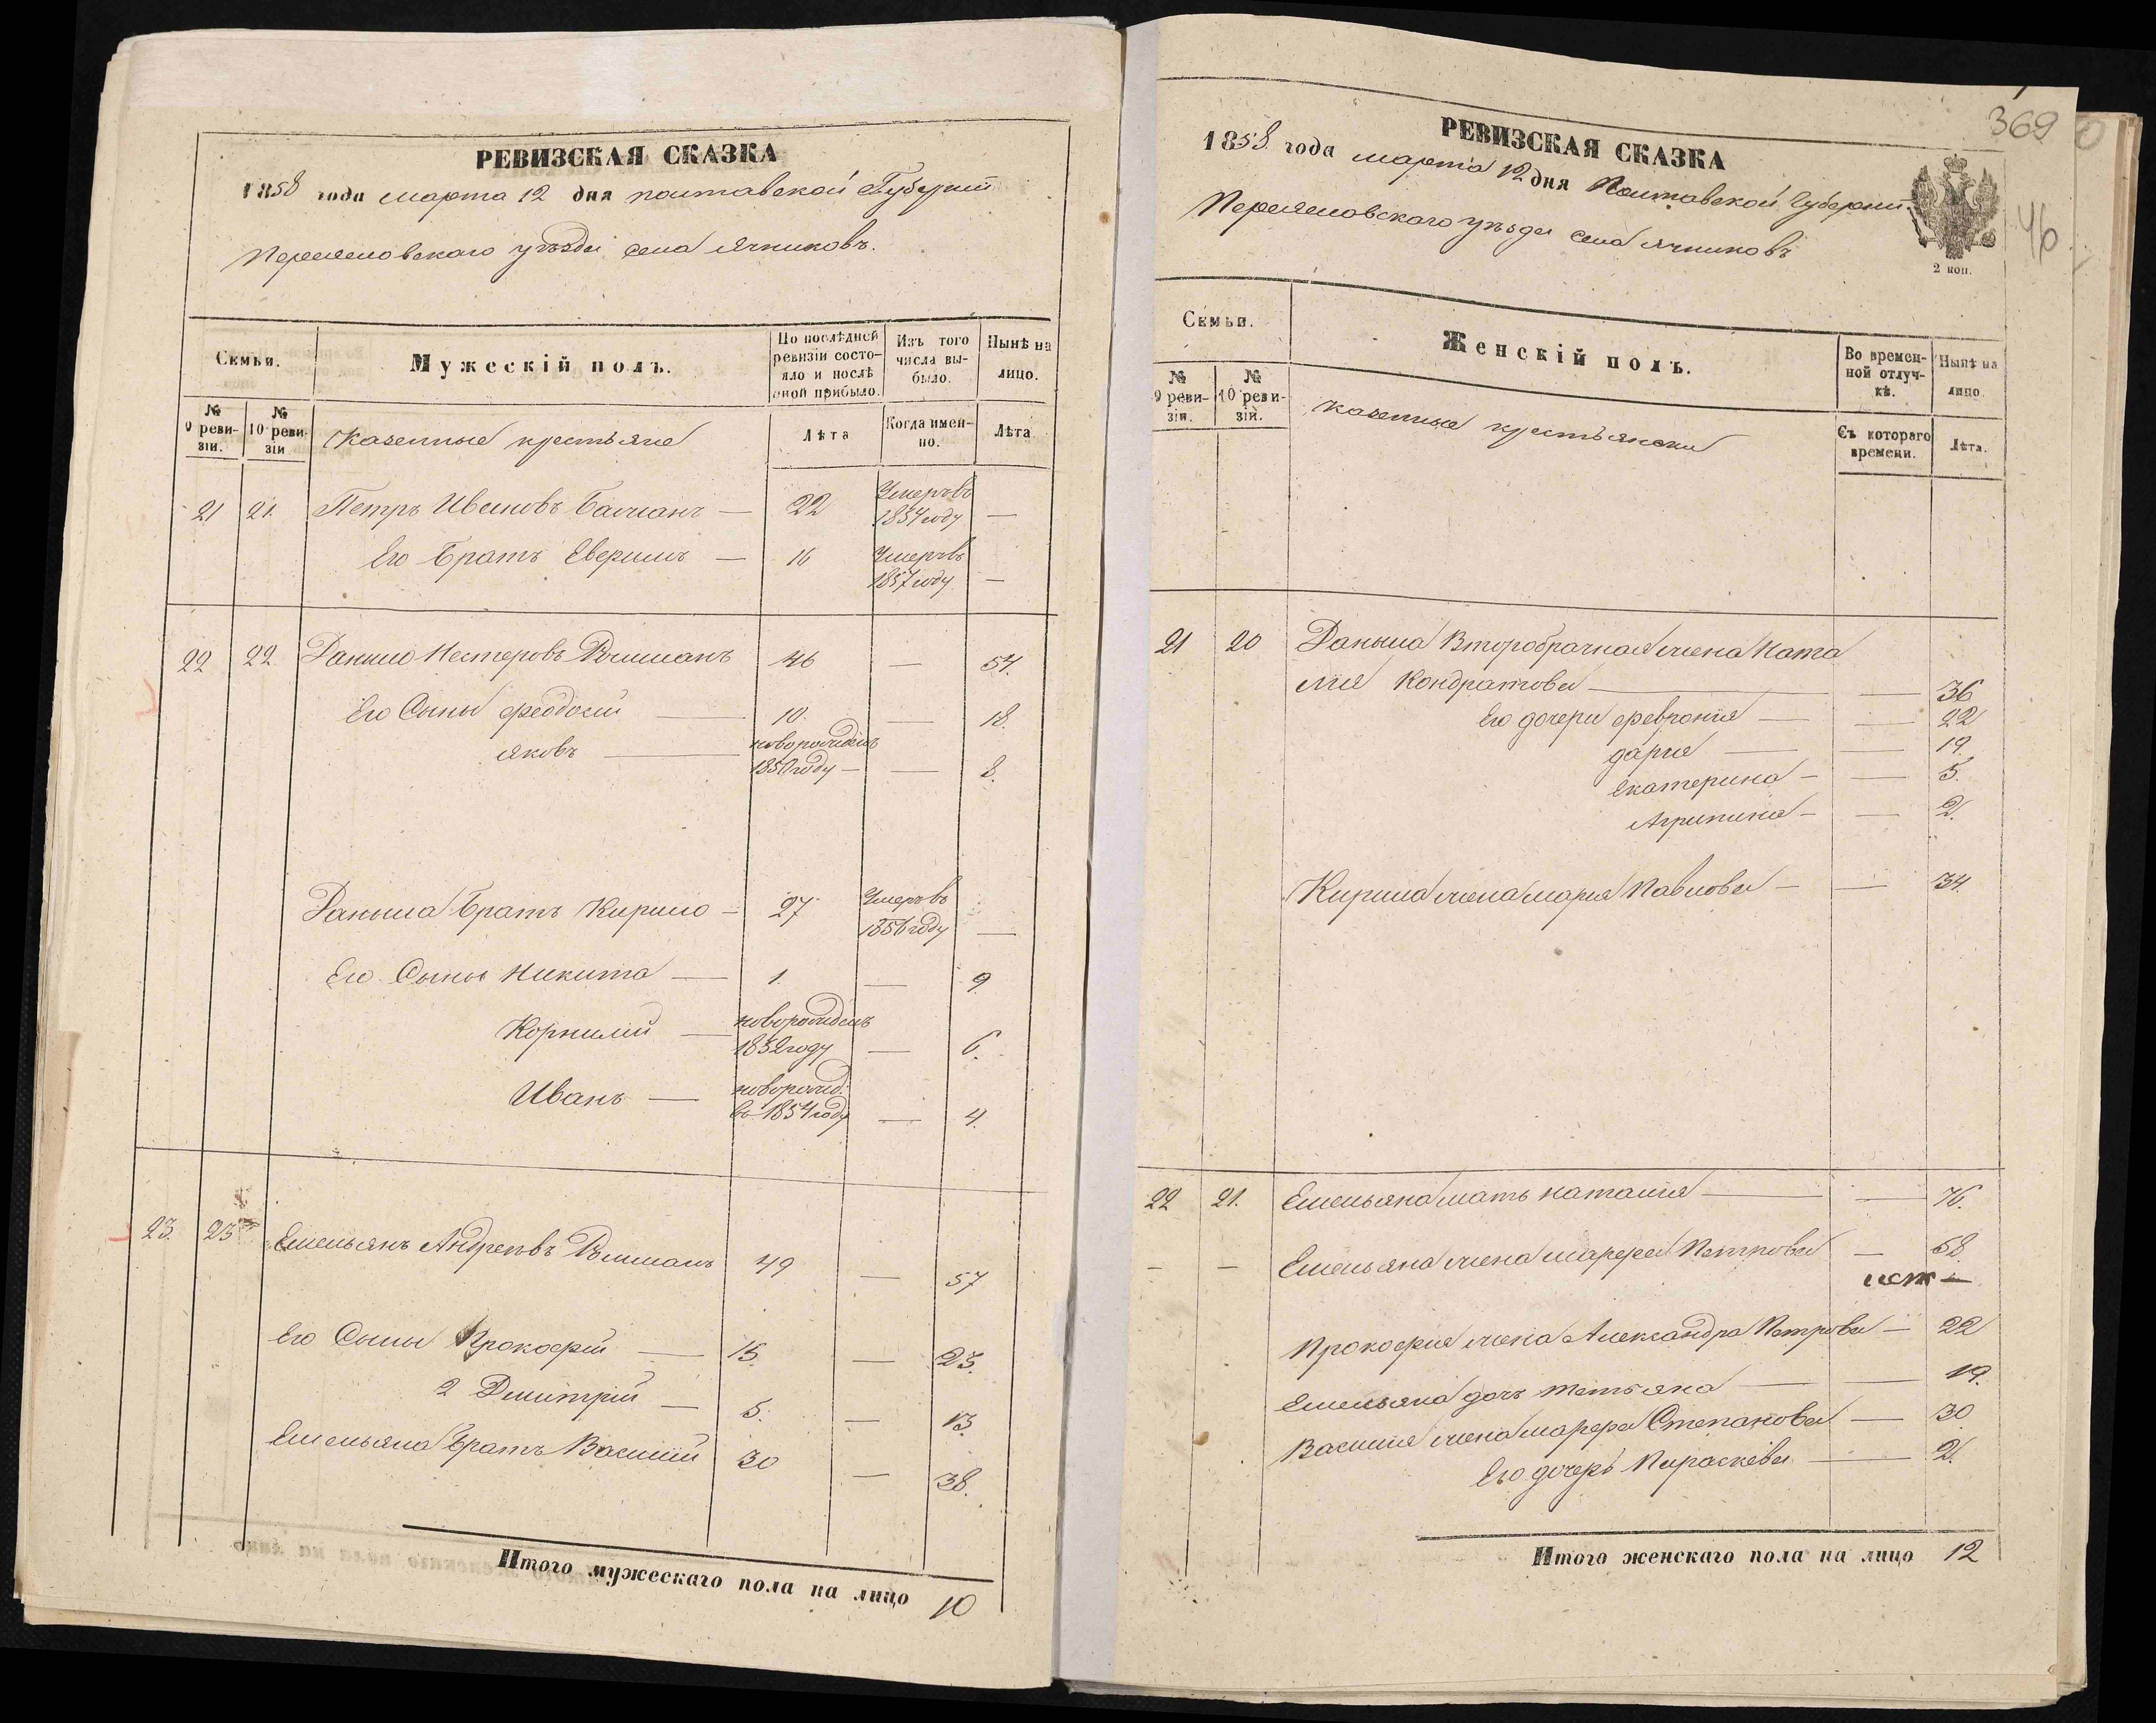 РЕВИЗСКАЯ СКАЗКА
1858 года марта 12 дня полтавской Губернiи
Переяславскаго уѣзда села Ячниковъ.
Семьи.
Мужескій полъ.
По послѣдней ревизіи состояло и послѣ оной прибыло.
Изъ того числа выбыло.
Нынѣ на лицо.
№ 9 ревизіи.
№ 10 ревизіи
Казенные крестьяне
Лѣта
Когда именно.
Лѣта
21 21. Петръ Ивановъ — 22 Умеръ въ 1854 году —
Его Братъ — 16 Умеръ въ 1857 году —
22 22. Данило Нестеровъ 46 — 54.
Его Сыны Феодосий — 10. — 18.
Яковъ — новорожденъ 1850 году — — 8.
Данила Братъ Кирило — 27 Умеръ въ 1856 году —
Его Сыны Никита — 1. — 9
Корнилий — новорожденъ 1852 году — 6.
Иванъ — новорожд. въ 1854 году — 4.
23. 23 Емельянъ Андреевъ 49 — 57
Его Сыны Прокофий — 15. — 23.
2 Дмитрий — 5. — 13.
Емельяна Братъ Василий 30 — 38.
Итого мужескаго пола на лицо 10
369
46
РЕВИЗСКАЯ СКАЗКА
1858 года марта 12 дня Полтавской Губернiи
Переяславскаго уѣзда села Ячниковъ
2 коп.
Семьи.
Женскій полъ.
Во временной отлучкѣ.
Нынѣ на лицо.
№ 9 ревизіи.
№ 10 ревизіи.
Казенные крестьянки
Съ котораго времени.
Лѣта.
21 20 Данила Второбрачная жена Ната
лия Кондратова — — 36
Его дочери Феврония — — 22
дария — — 19.
Екатерина — — 5.
Агрипина — — 2.
Кирила жена мария Павлова — — 34.
22 21. Емельяна мать наталия — — 76.
— — Емельяна жена марфа Петрова — 58
Прокофия жена Александра Петрова — 22
Емельяна дочь татьяна — — 19.
Василия жена марфа Степанова — 30
Его дочерь Параскева — 2.
Итого женскаго пола на лицо 12